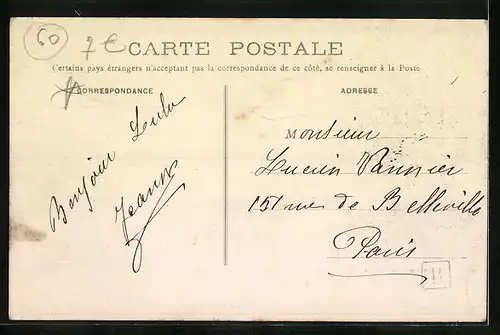 60
7 €
CARTE POSTALE
Certains pays étrangers n'acceptant pas la correspondance de ce côté, se renseigner à la Poste
CORRESPONDANCE
ADRESSE
Bonjour Lulu
Jeanne
Monsieur
Lucien Vannier
151 rue de Belleville
Paris